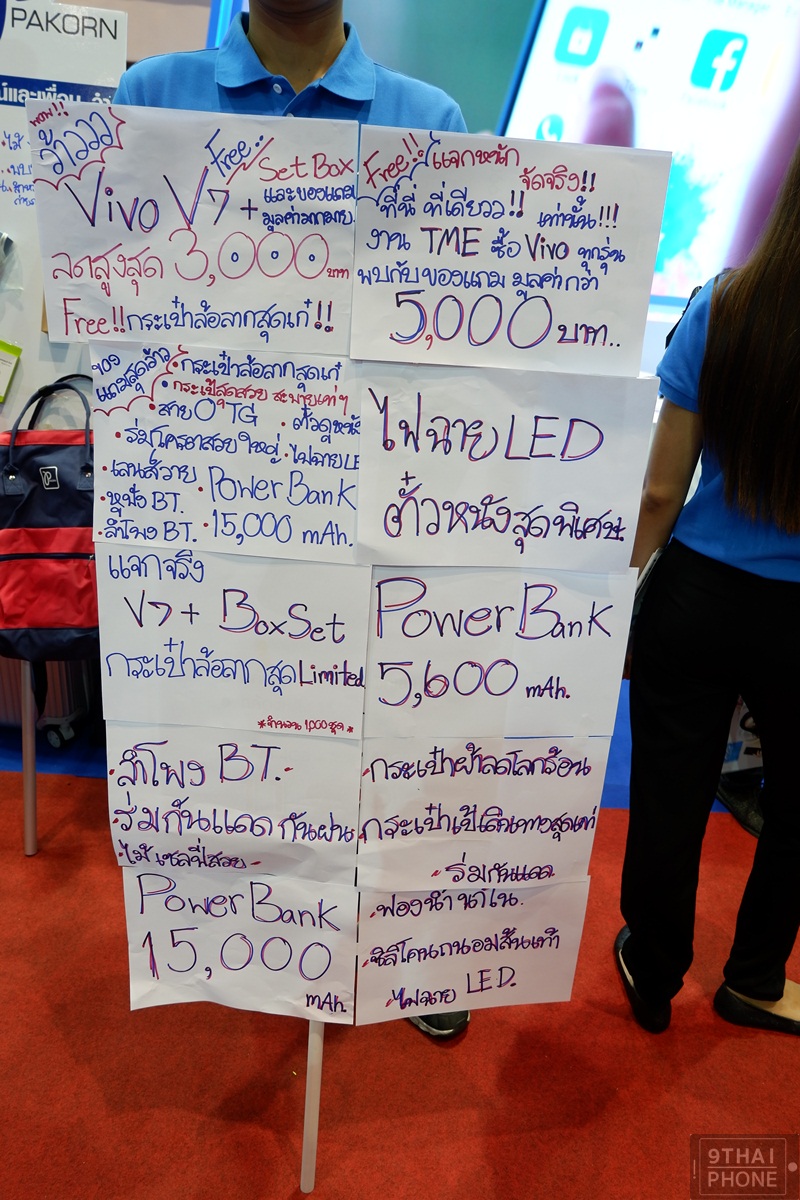 PAKORN
น์และเพื่อน
WOW!!
ว้าววว
Free!!
Set Box
Vivo V7+
และของแถม
มูลค่ามากมาย
ลดสูงสุด 3,000 บาท
Free!! กระเป๋าล้อลากสุดเก๋!!
Free!! แจกหนัก
จัดจริง!!
ที่นี่ ที่เดียวว!! เท่านั้น!!!
งาน TME ซื้อ Vivo ทุกรุ่น
พบกับของแถม มูลค่ากว่า
5,000 บาท..
ของ
แถมสุดว้าว
• กระเป๋าล้อลากสุดเก๋
• กระเป๋สุดสวย สะพายเท่ๆ
• สาย OTG • ตั๋วดูหนัง
• ร่มโครตสวยใหญ่ • ไฟฉาย LE
• เลนส์วาย • Power Bank
• หูฟัง BT. 15,000 mAh.
• ลำโพง BT.
ไฟฉาย LED
ตั๋วหนังสุดพิเศษ
แจกจริง
V7+ BoxSet
กระเป๋าล้อลากสุด Limited
*จำนวน 1,000 ชุด*
Power Bank
5,600 mAh.
- ลำโพง BT. -
- ร่มกันแดด กันฝน
- ไม้เซลฟี่สวย -
- กระเป๋าผ้าลดโลกร้อน
กระเป๋าเป้เดินทางสุดเท่
- ร่มกันแดด
Power Bank
15,000
mAh.
- ซิลิโคนถนอมส้นเท้า
- ไฟฉาย LED.
9THAI
PHONE